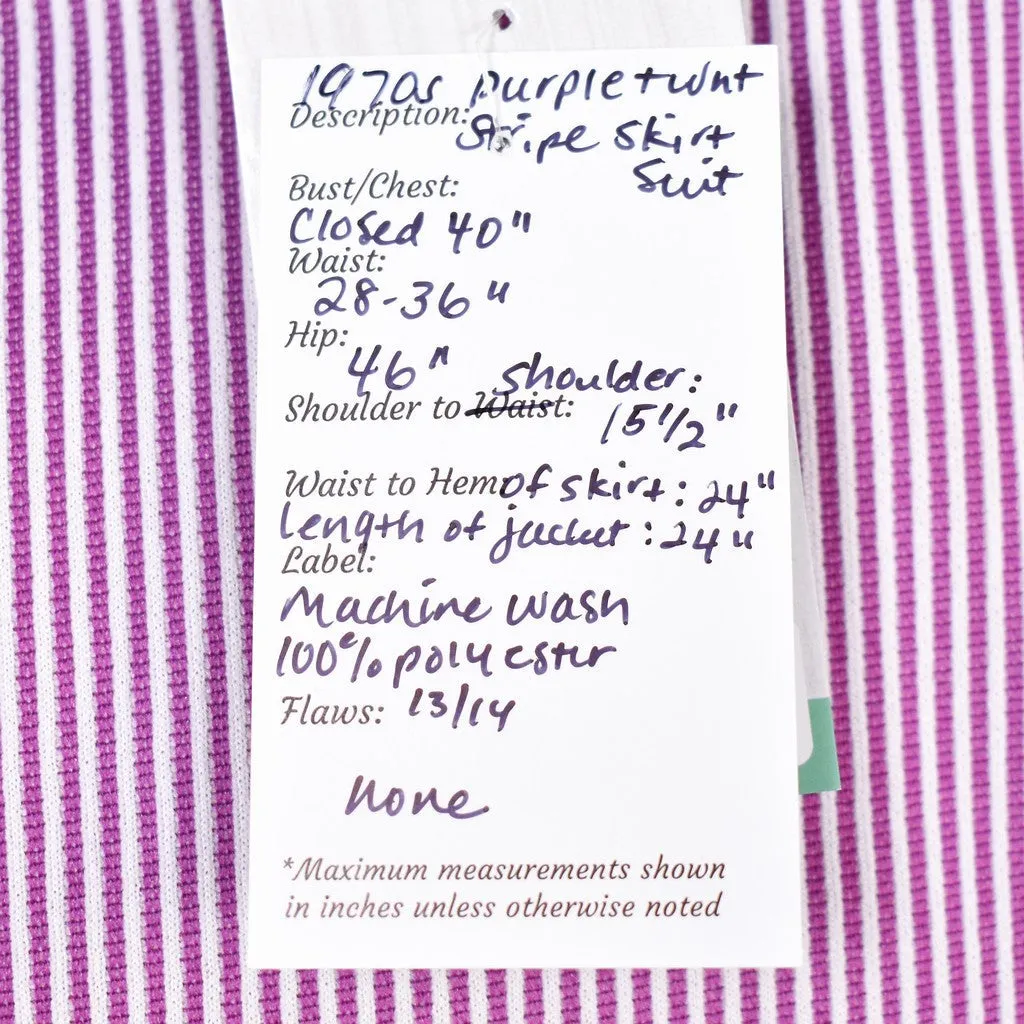 1970s purple + wht
Description: Stripe skirt
Suit
Bust/Chest:
Closed 40"
Waist:
28-36"
Hip:
46" shoulder:
Shoulder to Waist: 15 1/2"
Waist to Hem of skirt: 24"
length of jacket: 24"
Label:
Machine wash
100% polyester
Flaws: 13/14
none
*Maximum measurements shown
in inches unless otherwise noted